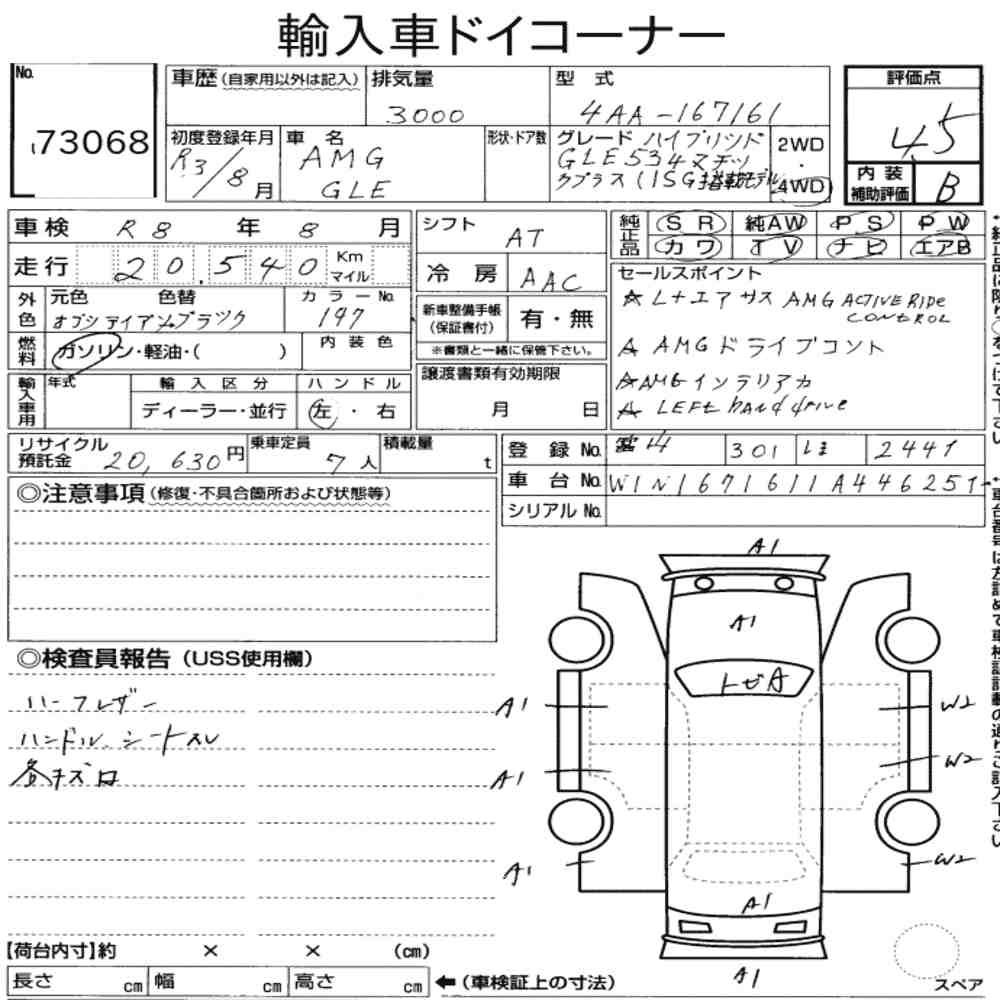 輸入車ドイコーナー
No.
73068
車歴(自家用以外は記入)
排気量
3000
型 式
4AA-167161
評価点
4.5
初度登録年月
R3/8月
車 名
AMG
GLE
形状・ドア数
グレード ハイブリッド
GLE534マチッ
クプラス(ISG搭載モデル
2WD
・
4WD
内装
補助評価
B
車検 R8 年 8 月
走行 20,540 Km
マイル
シフト
AT
冷房 AAC
純正品
SR 純AW PS PW
カワ TV ナビ エアB
外色
元色 色替
オブシディアンブラック
カラーNo.
197
新車整備手帳
(保証書付)
有・無
※書類と一緒に保管下さい。
セールスポイント
☆L+エアサス AMG ACTIVE RIDE
CONTROL
☆ AMGドライブコント
☆AMGインテリアカ
☆ LEFT hand drive
燃料
ガソリン・軽油・( )
内装色
輸入車用
年式
輸入区分
ディーラー・並行
ハンドル
左・右
譲渡書類有効期限
月 日
リサイクル
預託金 20,630円
乗車定員
7人
積載量
t
登録No. 301 2441
車台No. W1N1671611A446251
シリアルNo.
◎注意事項(修復・不具合箇所および状態等)
◎検査員報告(USS使用欄)
ハーフレザー
ハンドル、シートスレ
各キズ
A1
A1
トビA
A1
W2
A1
W2
A1
W2
A1
A1
【荷台内寸】約 × × (cm)
長さ cm 幅 cm 高さ cm ←(車検証上の寸法)
スペア